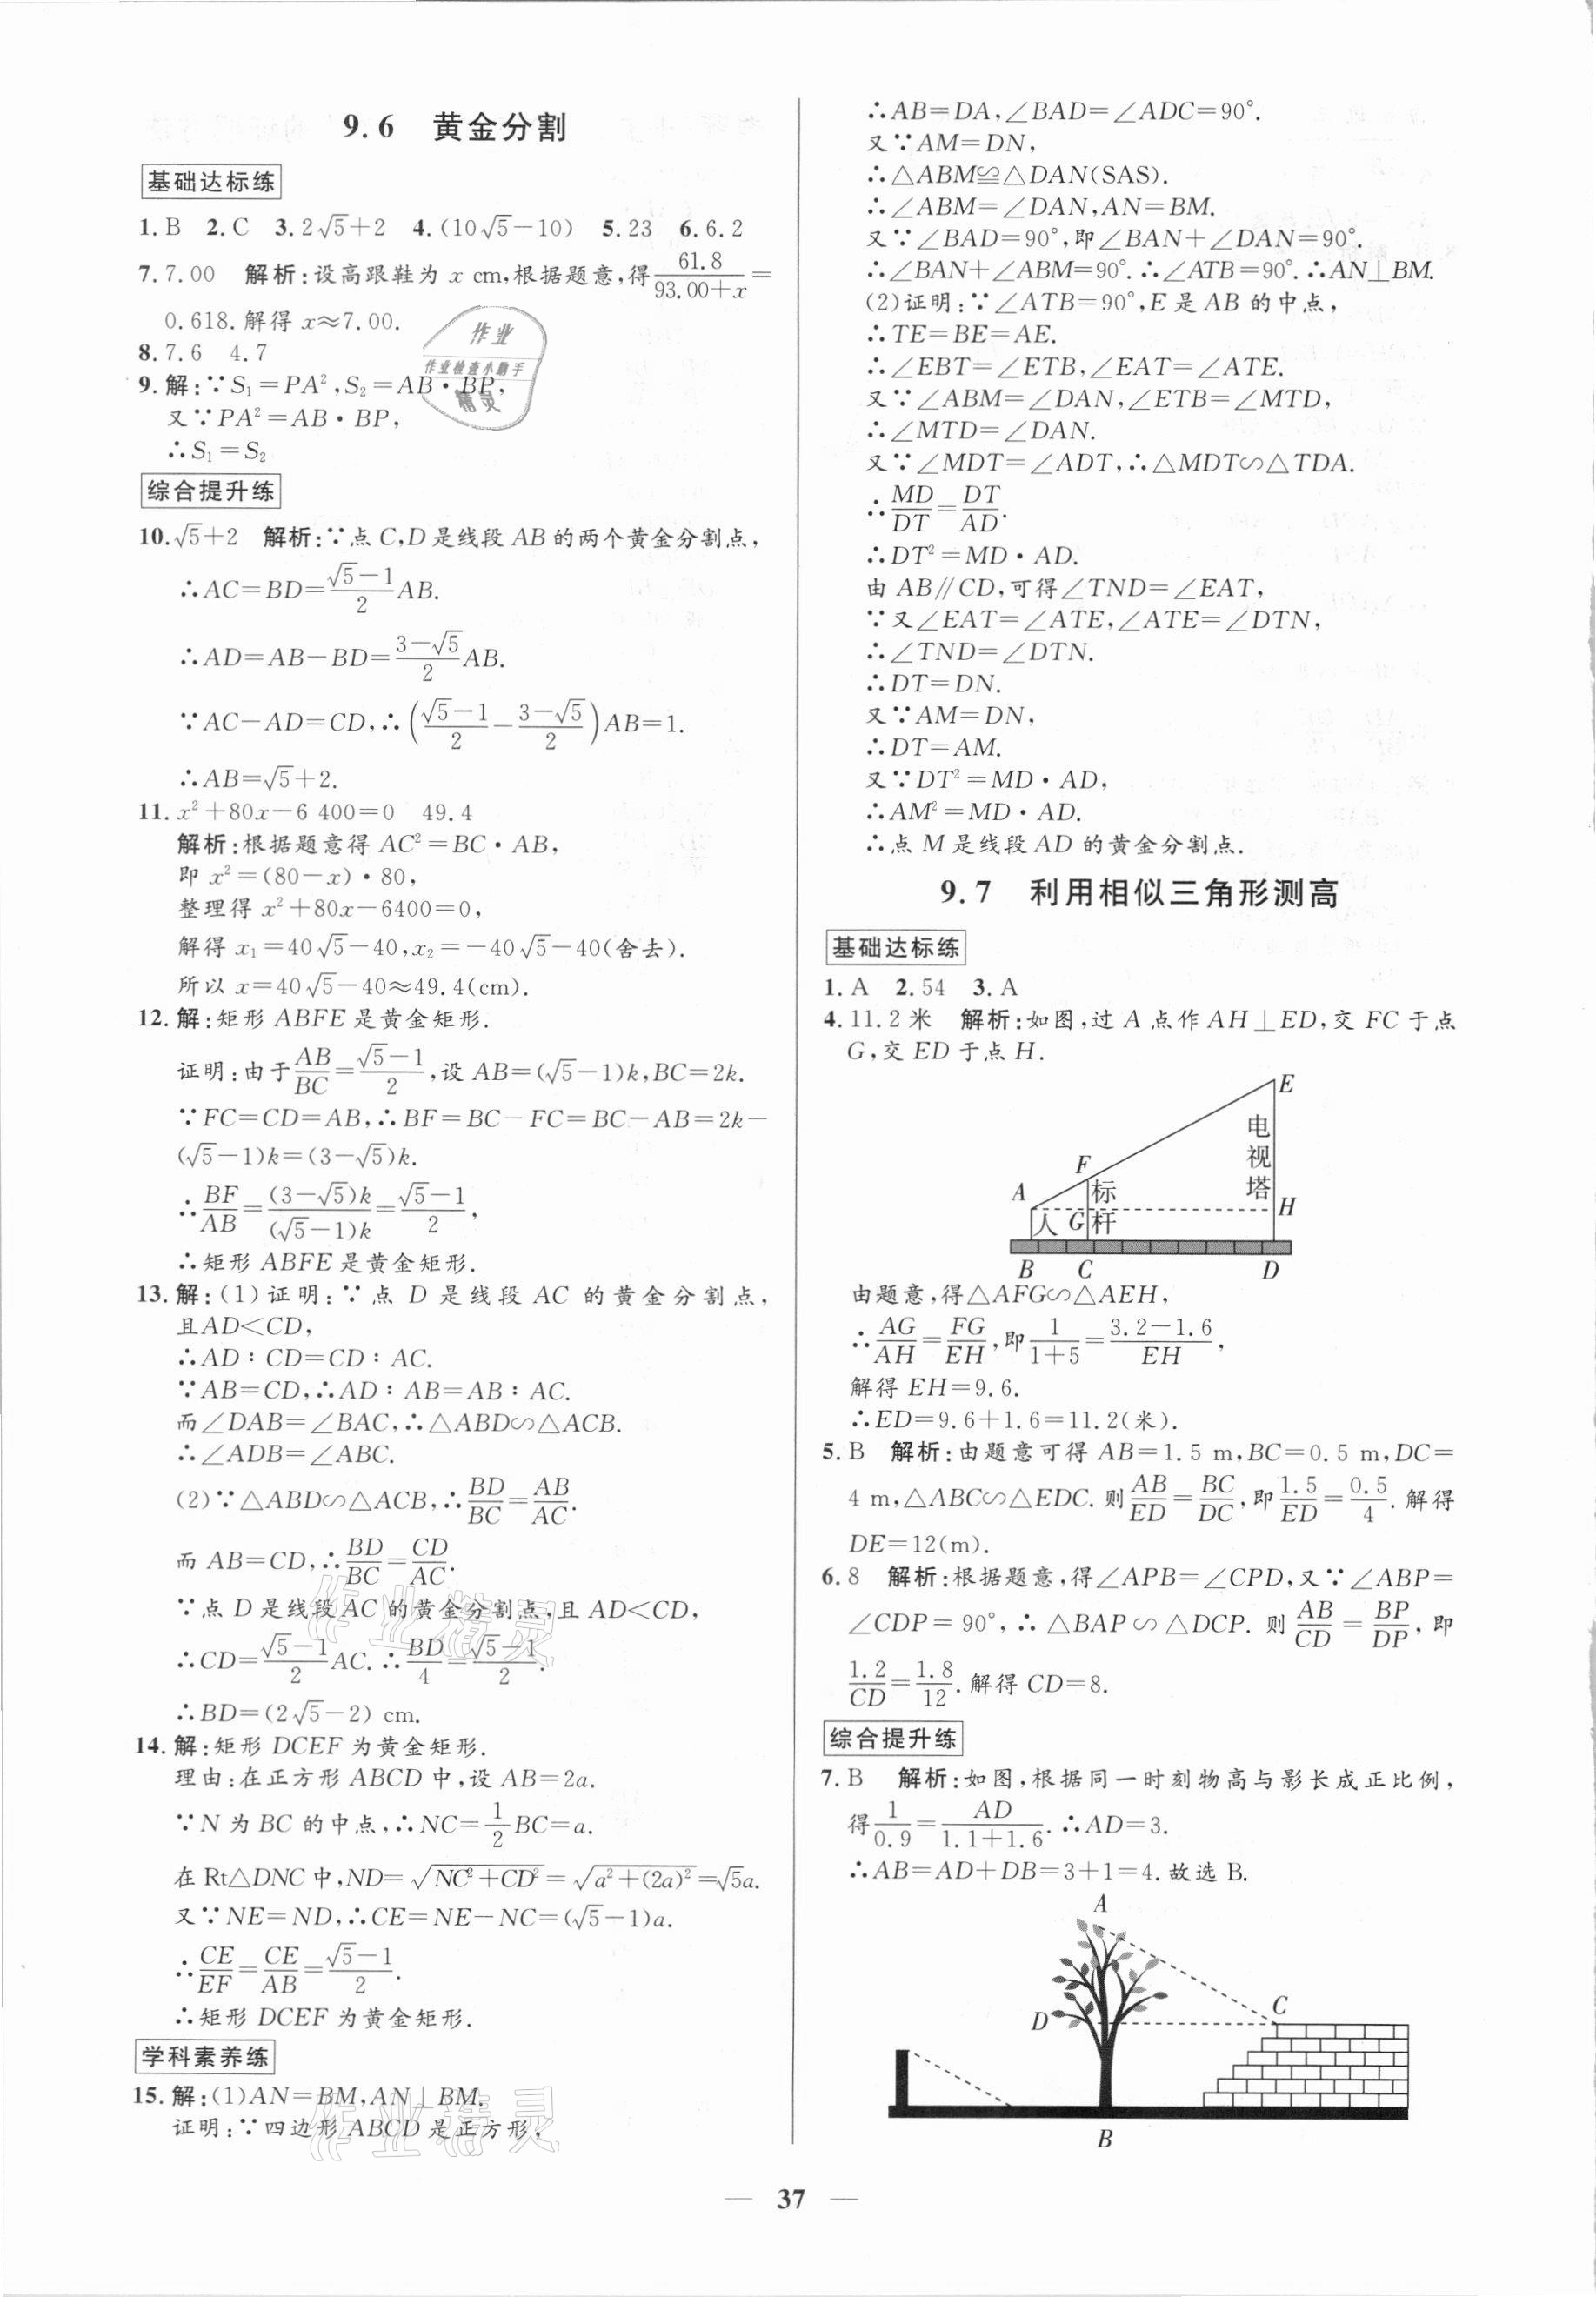 9.6 黄金分割
基础达标练
1.B 2.C 3.2√5+2 4.(10√5-10) 5.23 6.6.2
7.7.00 解析:设高跟鞋为 x cm,根据题意,得61.8/(93.00+x)=
0.618.解得 x≈7.00.
8.7.6 4.7
9.解:∵S₁=PA²,S₂=AB·BP,
又∵PA²=AB·BP,
∴S₁=S₂
综合提升练
10.√5+2 解析:∵点 C,D是线段 AB的两个黄金分割点,
∴AC=BD=(√5-1)/2 AB.
∴AD=AB-BD=(3-√5)/2 AB.
∵AC-AD=CD,∴((√5-1)/2-(3-√5)/2)AB=1.
∴AB=√5+2.
11.x²+80x-6 400=0 49.4
解析:根据题意得 AC²=BC·AB,
即 x²=(80-x)·80,
整理得 x²+80x-6400=0,
解得 x₁=40√5-40,x₂=-40√5-40(舍去).
所以 x=40√5-40≈49.4(cm).
12.解:矩形 ABFE 是黄金矩形.
证明:由于AB/BC=(√5-1)/2,设 AB=(√5-1)k,BC=2k.
∵FC=CD=AB,∴BF=BC-FC=BC-AB=2k-
(√5-1)k=(3-√5)k.
∴BF/AB=(3-√5)k/(√5-1)k=(√5-1)/2,
∴矩形 ABFE 是黄金矩形.
13.解:(1)证明:∵点 D 是线段 AC 的黄金分割点,
且AD<CD,
∴AD∶CD=CD∶AC.
∵AB=CD,∴AD∶AB=AB∶AC.
而∠DAB=∠BAC,∴△ABD∽△ACB.
∴∠ADB=∠ABC.
(2)∵△ABD∽△ACB,∴BD/BC=AB/AC.
而 AB=CD,∴BD/BC=CD/AC.
∵点 D 是线段AC 的黄金分割点,且 AD<CD,
∴CD=(√5-1)/2 AC.∴BD/4=(√5-1)/2.
∴BD=(2√5-2) cm.
14.解:矩形 DCEF 为黄金矩形.
理由:在正方形 ABCD 中,设 AB=2a.
∵N 为 BC 的中点,∴NC=1/2 BC=a.
在 Rt△DNC 中,ND=√(NC²+CD²)=√(a²+(2a)²)=√5a.
又∵NE=ND,∴CE=NE-NC=(√5-1)a.
∴CE/EF=CE/AB=(√5-1)/2.
∴矩形 DCEF 为黄金矩形.
学科素养练
15.解:(1)AN=BM,AN⊥BM.
证明:∵四边形 ABCD 是正方形,
∴AB=DA,∠BAD=∠ADC=90°.
又∵AM=DN,
∴△ABM≌△DAN(SAS).
∴∠ABM=∠DAN,AN=BM.
又∵∠BAD=90°,即∠BAN+∠DAN=90°.
∴∠BAN+∠ABM=90°.∴∠ATB=90°.∴AN⊥BM.
(2)证明:∵∠ATB=90°,E 是 AB 的中点,
∴TE=BE=AE.
∴∠EBT=∠ETB,∠EAT=∠ATE.
又∵∠ABM=∠DAN,∠ETB=∠MTD,
∴∠MTD=∠DAN.
又∵∠MDT=∠ADT,∴△MDT∽△TDA.
∴MD/DT=DT/AD.
∴DT²=MD·AD.
由 AB∥CD,可得∠TND=∠EAT,
∵又∠EAT=∠ATE,∠ATE=∠DTN,
∴∠TND=∠DTN.
∴DT=DN.
又∵AM=DN,
∴DT=AM.
又∵DT²=MD·AD,
∴AM²=MD·AD.
∴点 M 是线段 AD 的黄金分割点.
9.7 利用相似三角形测高
基础达标练
1.A 2.54 3.A
4.11.2米 解析:如图,过 A 点作 AH⊥ED,交 FC 于点
G,交 ED 于点 H.
E
电视塔
F
A
标杆
人
G
H
B C D
由题意,得△AFG∽△AEH,
∴AG/AH=FG/EH,即1/(1+5)=(3.2-1.6)/EH,
解得 EH=9.6.
∴ED=9.6+1.6=11.2(米).
5.B 解析:由题意可得 AB=1.5 m,BC=0.5 m,DC=
4 m,△ABC∽△EDC.则AB/ED=BC/DC,即1.5/ED=0.5/4.解得
DE=12(m).
6.8 解析:根据题意,得∠APB=∠CPD,又∵∠ABP=
∠CDP=90°,∴△BAP∽△DCP.则AB/CD=BP/DP,即
1.2/CD=1.8/12.解得 CD=8.
综合提升练
7.B 解析:如图,根据同一时刻物高与影长成正比例,
得1/0.9=AD/(1.1+1.6).∴AD=3.
∴AB=AD+DB=3+1=4.故选 B.
A
C
D
B
— 37 —
作业
作业检查小助手
精灵
作业精灵
作业精灵